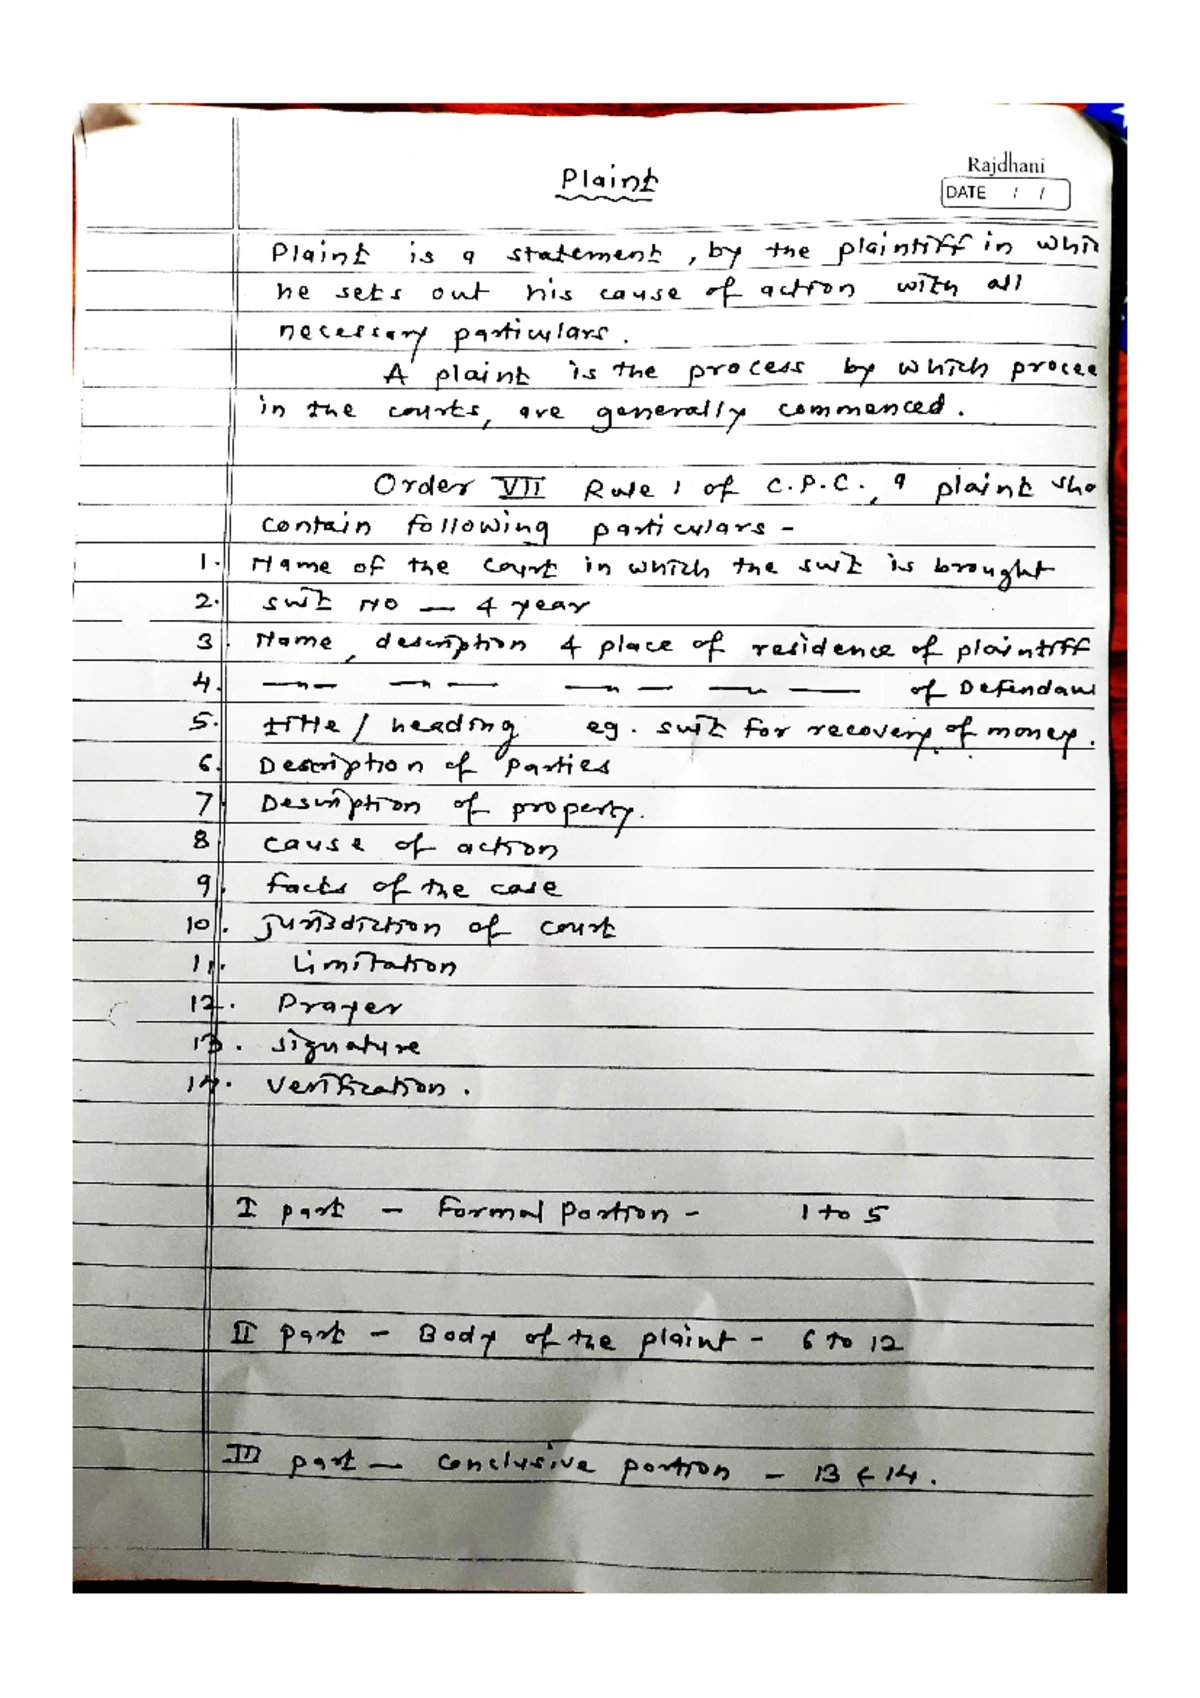 Rajdhani
Plaint
DATE / /
Plaint is a statement, by the plaintiff in whic
he sets out his cause of action with all
necessary particulars.
A plaint is the process by which procee
in the courts, are generally commenced.
Order VII Rule 1 of C.P.C., a plaint sho
contain following particulars -
1. Name of the court in which the suit is brought
2. suit No — & year
3. Name, description & place of residence of plaintiff
4. —〃— —〃— —〃— —〃— of Defendan
5. title / heading eg. suit for recovery of money.
6. Description of Parties
7. Description of property.
8. cause of action
9. facts of the case
10. jurisdiction of court
11. Limitation
12. Prayer
13. signature
14. verification.
I part - Formal Portion - 1 to 5
II part - Body of the plaint - 6 to 12
III part - conclusive portion - 13 & 14.